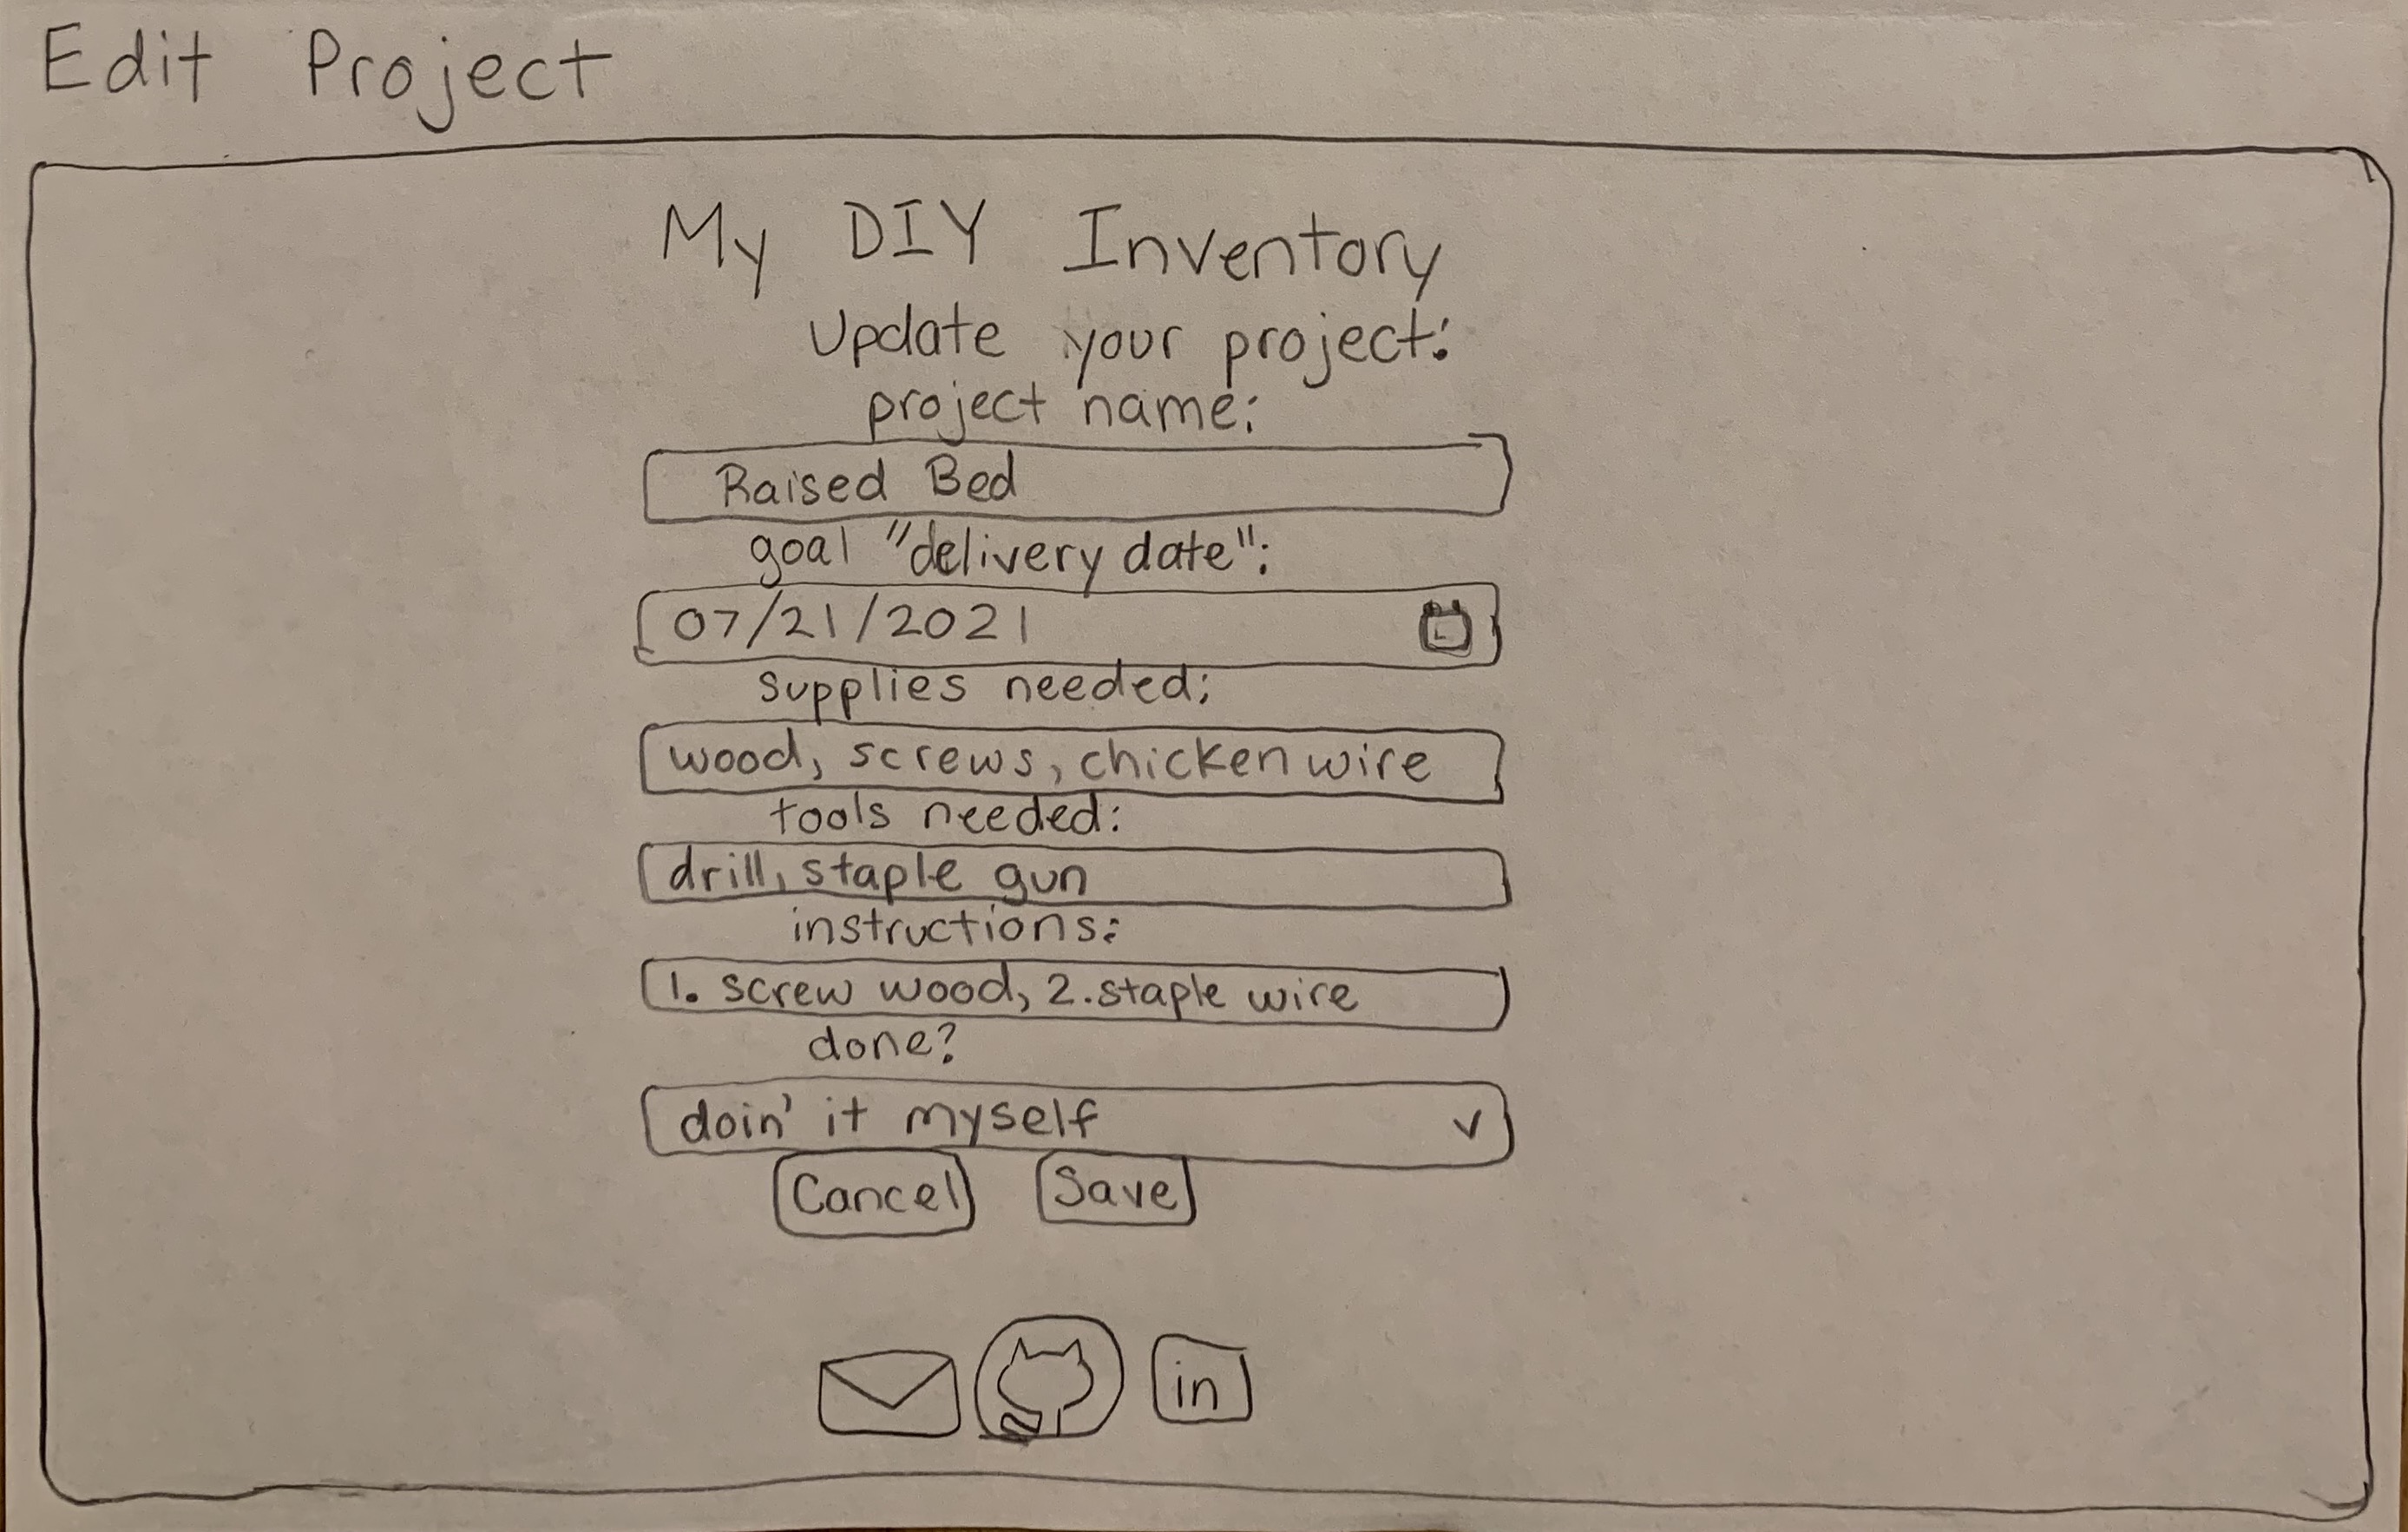 Edit Project
My DIY Inventory
Update your project:
project name:
Raised Bed
goal "delivery date":
07/21/2021
supplies needed:
wood, screws, chicken wire
tools needed:
drill, staple gun
instructions:
1. screw wood, 2. staple wire
done?
doin' it myself
Cancel Save
in